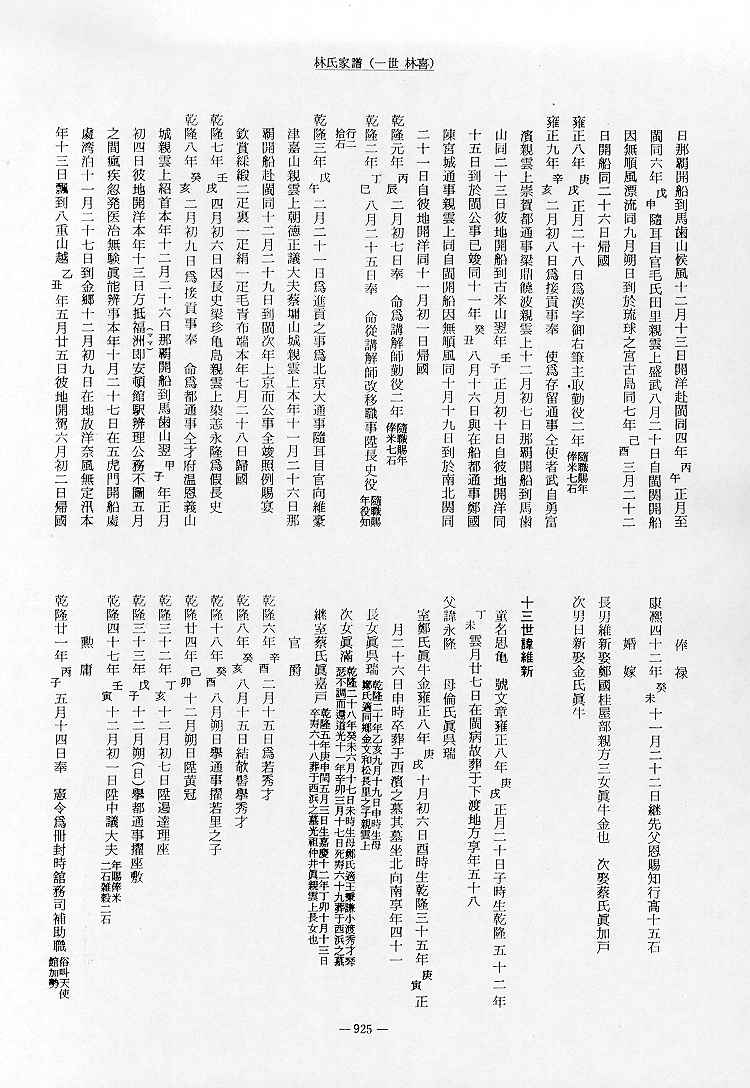 林氏家譜(一世 林喜)
日那覇開船到馬歯山候風十二月十三日開洋赴閩同四年丙午正月至
閩同六年戊申隨耳目官毛氏田里親雲上盛武八月二十日自閩関開船
因無順風漂流同九月朔日到於琉球之宮古島同七年己酉三月二十二
日開船同二十六日帰國
雍正八年庚戌正月二十八日爲漢字御右筆主取勤役二年隨職賜年俸米七石
雍正九年辛亥二月初八日爲接貢事奉 使爲存留通事仝使者武自勇富
濱親雲上崇賀都通事梁鼎饒波親雲上十二月初七日那覇開船到馬歯
山同二十三日彼地開船到古米山翌年壬子正月初十日自彼地開洋同
十五日到於閩公事已竣同十一年癸丑八月十六日與在船都通事鄭國
陳宮城通事親雲上同自閩開船因無順風同十月十九日到於南北関同
二十一日自彼地開洋同十一月初一日帰國
乾隆元年丙辰二月初七日奉 命爲講解師勤役二年隨職賜年俸米七石
乾隆二年丁巳八月二十五日奉 命從講解師改移職事陞長史役隨職賜年役知
行二拾石
乾隆三年戊午二月二十一日爲進貢之事爲北京大通事隨耳目官向維豪
津嘉山親雲上朝徳正議大夫蔡墉山城親雲上本年十一月二十六日那
覇開船赴閩同十二月二十九日到閩次年上京而公事全竣照例賜宴
欽賞綵緞二疋裏一疋絹一疋毛青布端本年七月二十八日帰國
乾隆七年壬戌四月初六日因長史梁珍亀島親雲上染恙永隆爲假長史
乾隆八年癸亥二月初九日爲接貢事奉 命爲都通事仝才府温恩義山
城親雲上紹首本年十二月二十六日那覇開船到馬歯山翌甲子年正月
初四日彼地開洋本年十三日方抵福洲(ママ)即安頓館駅辨理公務不圖五月
之間瘋疾忽発医治無験眞能辨事本年十月二十七日在五虎門開船處
處湾泊十一月二十七日到金郷十二月初九日在地放洋奈風無定汛本
年十三日飄到八重山越乙丑年五月廿五日彼地開駕六月初二日帰國
俸禄
康熈四十二年癸未十一月二十二日継先父恩賜知行高十五石
婚嫁
長男維新娶鄭國桂屋部親方三女眞牛金也 次娶蔡氏眞加戸
次男日新娶金氏眞牛
十三世諱維新
童名思亀 號文章雍正八年庚戌正月二十日子時生乾隆五十二年
丁未雲月廿七日在閩病故葬于下渡地方享年五十八
父諱永隆 母倫氏眞呉瑞
室鄭氏眞牛金雍正八年庚戌十月初六日酉時生乾隆三十五年庚寅正
月二十六日申時卒葬于西濱之墓其墓坐北向南享年四十一
長女眞呉瑞乾隆二十年乙亥九月十九日申時生母鄭氏適同郷金文和松長里之子親雲上
次女眞滿乾隆二十八年癸未六月十七日未時生母鄭氏適王秉謙小渡秀才琴瑟不調而還道光十一年辛卯三月十七日死寿六十九葬于西浜之墓
継室蔡氏眞嘉戸乾隆五年庚申閏五月三日生嘉慶十二年丁卯十月十三日卒寿六十八葬于西浜之墓光祖仲井眞親雲上長女也
官爵
乾隆六年辛酉二月十五日爲若秀才
乾隆八年癸亥八月十五日結欹髻擧秀才
乾隆十八年癸酉八月朔日擧通事擢若里之子
乾隆廿四年己卯十二月朔日陞黄冠
乾隆三十二年丁亥十二月初七日陞遏達理座
乾隆三十三年戊子十二月朔(日)擧都通事擢座敷
乾隆四十七年壬寅十二月初一日陞中議大夫年賜俸米二石雑穀二石
勲庸
乾隆廿一年丙子五月十四日奉 憲令爲冊封時舘務司補助職俗叫天使館加勢
—925—